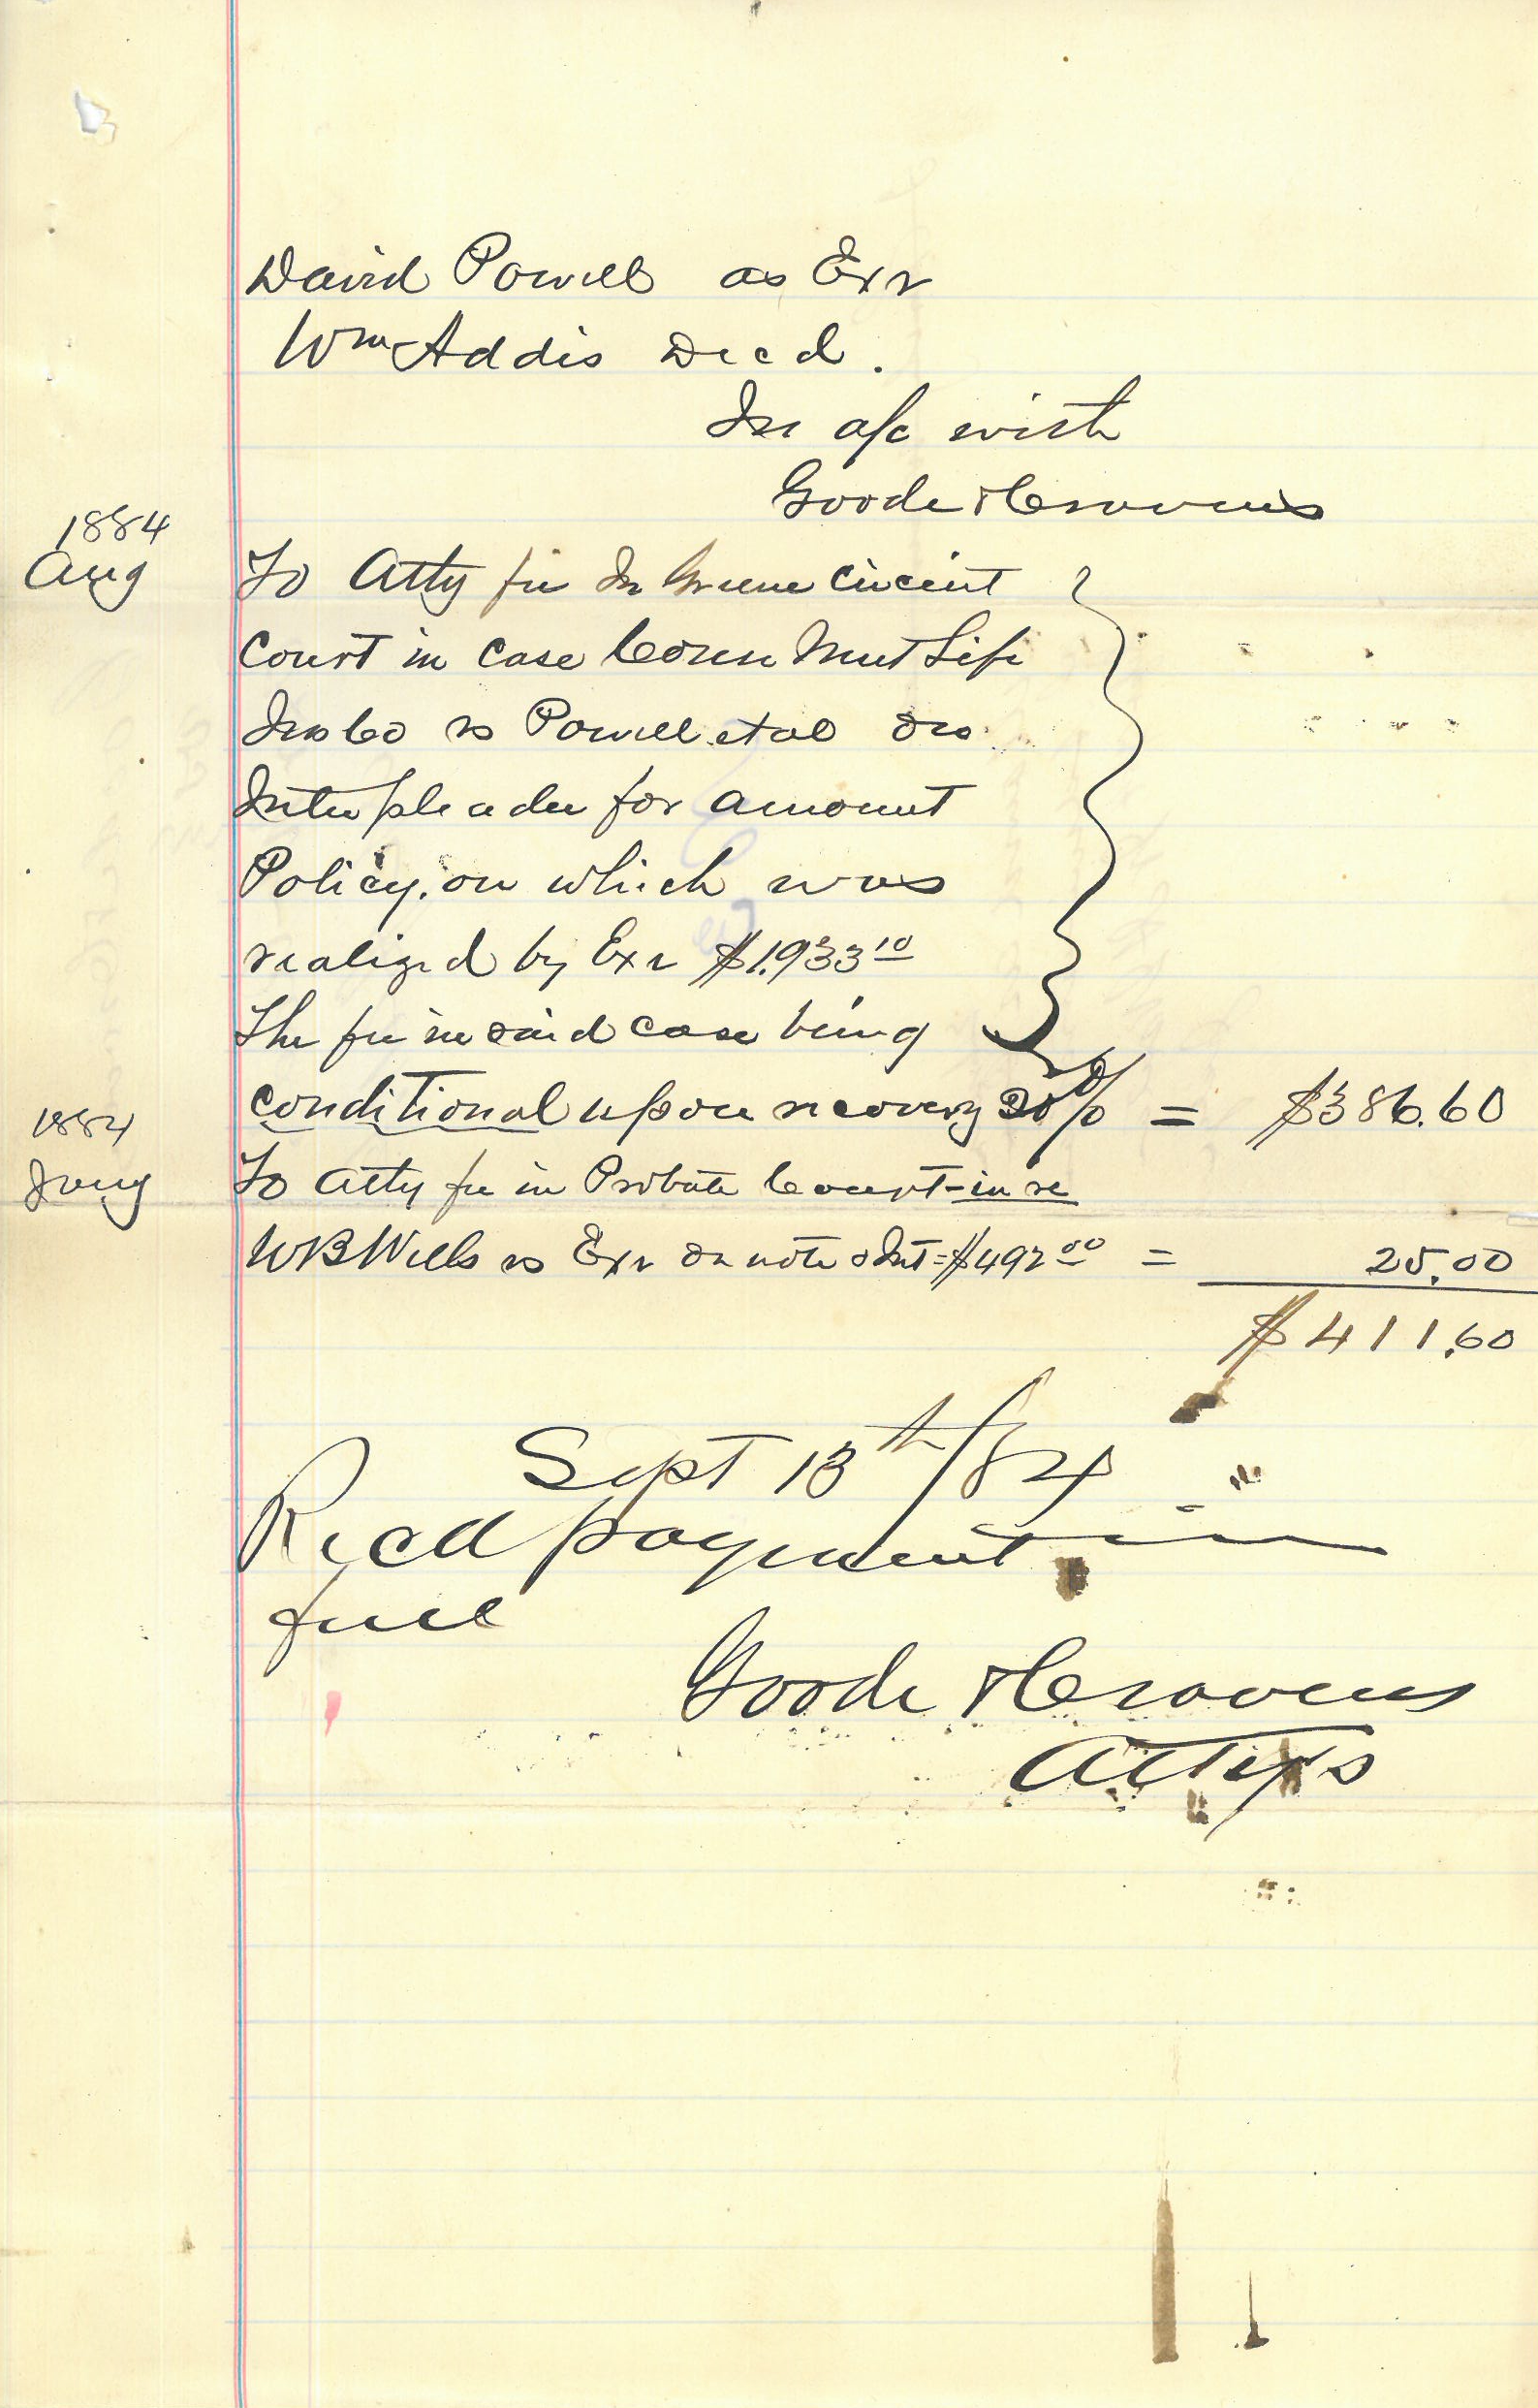 David Powell as Exr
Wm Addis Decd.
In a/c with
Goode & Cravens
1884
Aug To Atty fee In Greene Circuit
Court in case Conn Mut Life
Ins Co vs Powell et al on
Interpleader for amount
Policy, on which was
realized by Exr $1,933 10
The fee in said case being
conditional upon recovery 20% = $386.60
1884
To Atty fee in Probate Court - in re
WB Wells vs Exr on note & Int = $492 00 = 25.00
$411.60
Sept 13th/84
Recd payment in
full
Goode & Cravens
Attys